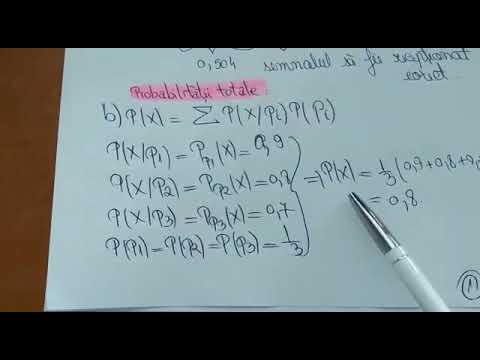 0,504 semnalul să fie recepționat
corect
Probabilități totale
b) P(X) = Σ P(X/Pi) P(Pi)
P(X/P1) = P_P1(X) = 0,9
P(X/P2) = P_P2(X) = 0,8
P(X/P3) = P_P3(X) = 0,7
P(P1) = P(P2) = P(P3) = 1/3
⇒ P(X) = 1/3 (0,9+0,8+0,
= 0,8.
1